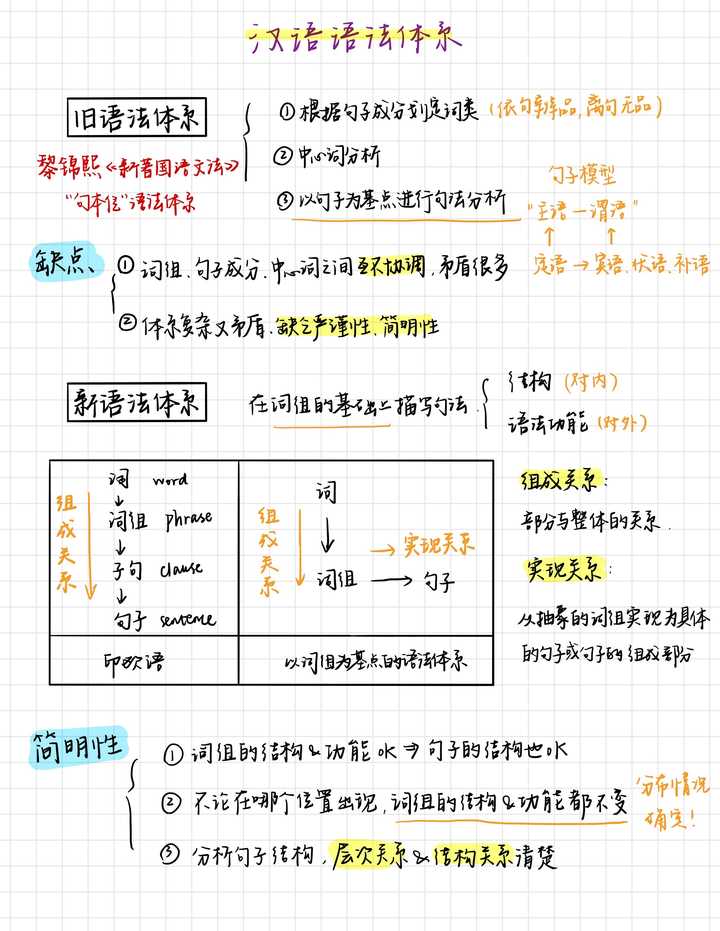 汉语语法体系
旧语法体系
黎锦熙《新著国语文法》
"句本位"语法体系
① 根据句子成分划定词类 (依句辨品,离句无品)
② 中心词分析
③ 以句子为基点进行句法分析
句子模型
"主语—谓语"
↑ ↑
定语 → 宾语、状语、补语
缺点、
① 词组、句子成分、中心词之间互不协调,矛盾很多
② 体系复杂又矛盾、缺乏严谨性、简明性
新语法体系
在词组的基础上描写句法
结构 (对内)
语法功能 (对外)
组成关系
词 word
↓
词组 phrase
↓
子句 clause
↓
句子 sentence
印欧语
组成关系
词
↓
词组 → 句子
→ 实现关系
以词组为基点的语法体系
组成关系:
部分与整体的关系.
实现关系:
从抽象的词组实现为具体
的句子或句子的组成部分
简明性
① 词组的结构&功能OK ⇒ 句子的结构也OK
② 不论在哪个位置出现,词组的结构&功能都不变
分布情况
确定!
③ 分析句子结构,层次关系&结构关系清楚